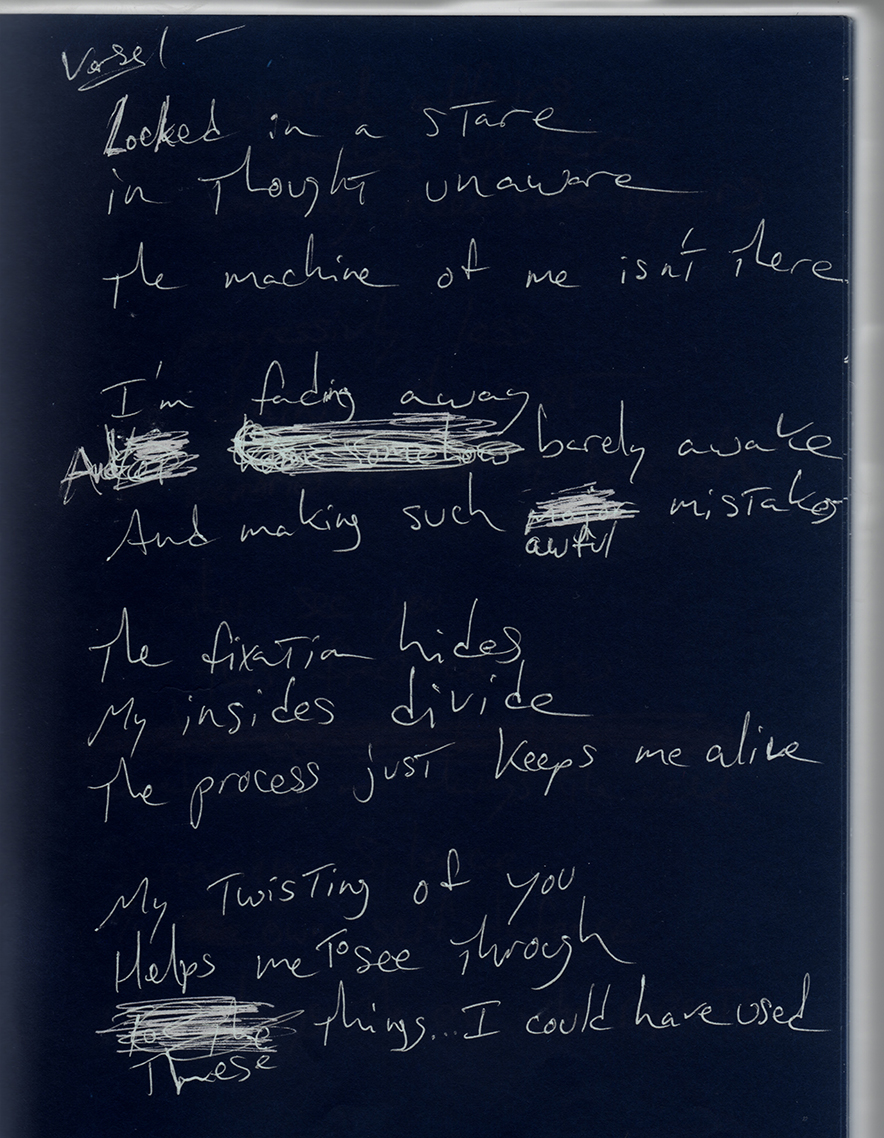 Verse 1 –
Locked in a stare
in Thought unaware
The machine of me isn't There
I'm fading away
barely awake
And making such mistakes
awful
The fixation hides
My insides divide
The process just keeps me alive
My Twisting of you
Helps me To see Through
Things... I could have used
These